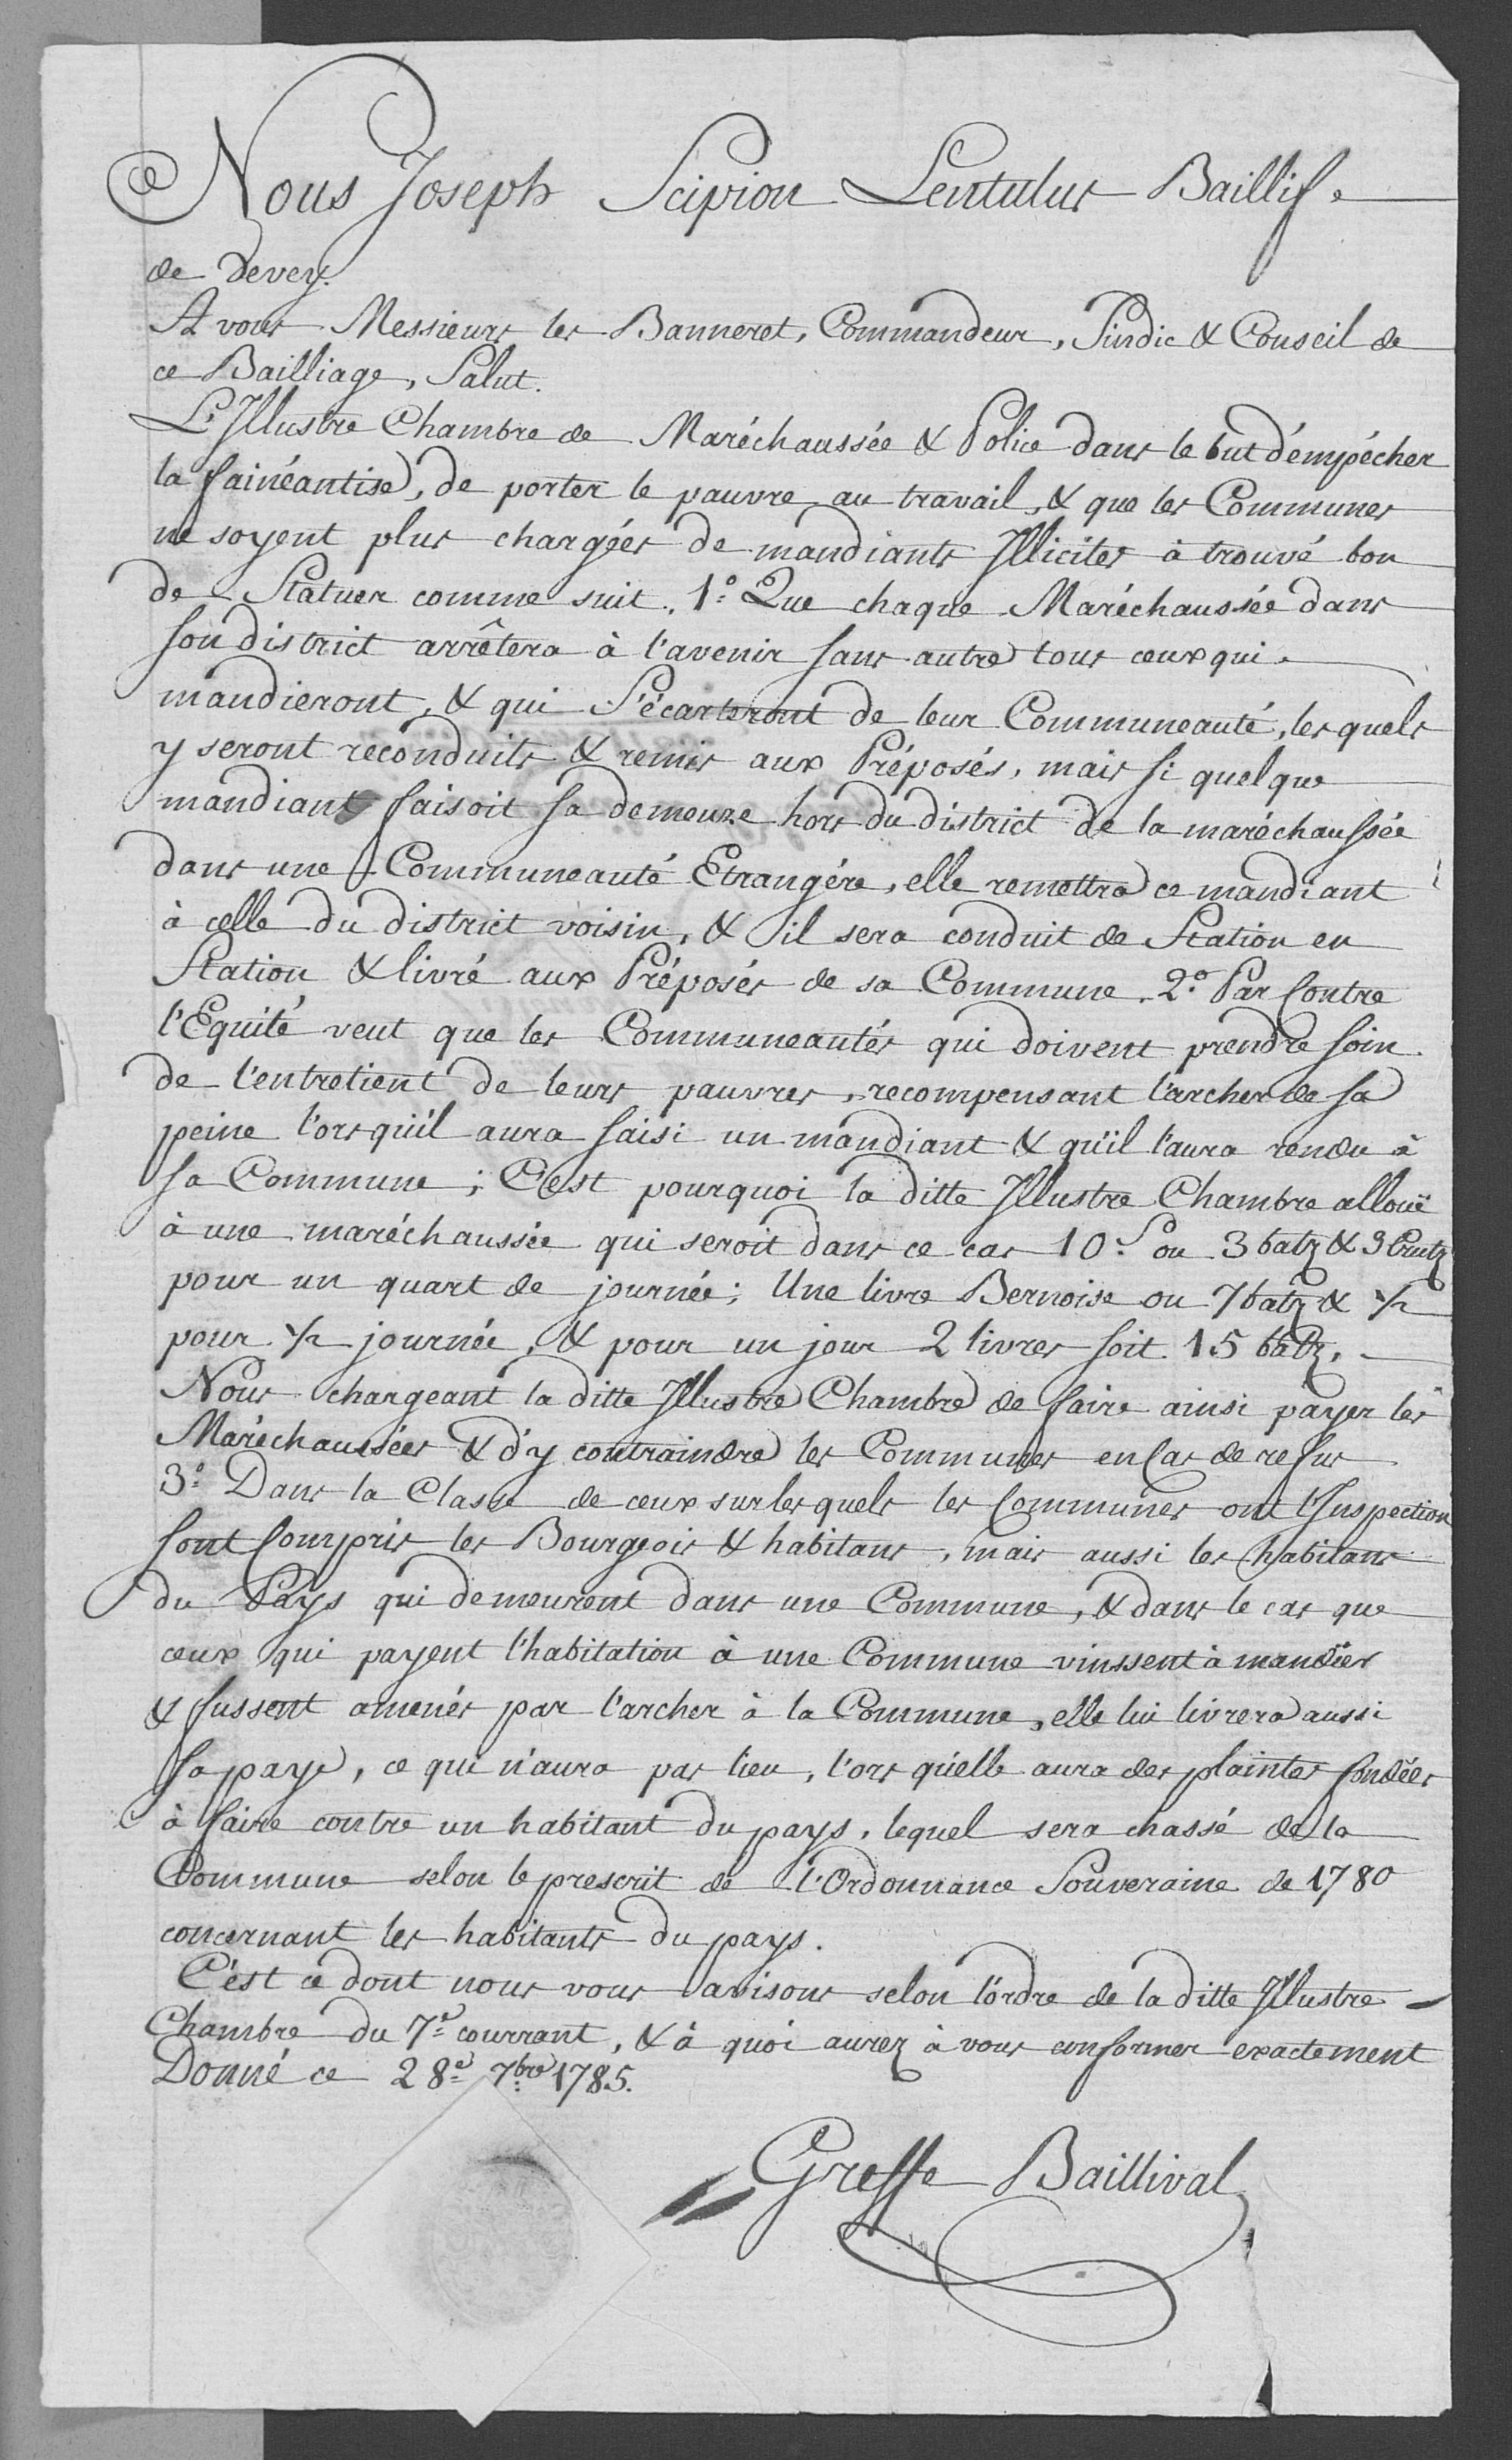 Nous Joseph Scipion Lentulus Baillif
de Vevey.
A vous Messieurs les Banneret, Commandeur, Sindic & Conseil de
ce Bailliage, Salut.
L'Illustre Chambre de Maréchaussée & Police dans le but d'empécher
la fainéantise, de porter le pauvre au travail, & que les Communes
ne soyent plus chargées de mandiants Illicites à trouvé bon
de Statuer comme suit. 1.° Que chaque Maréchaussée dans
son district arrêtera à l'avenir sans autre tous ceux qui
mandieront, & qui S'écarteront de leur Communeauté, lesquels
y seront reconduits & remis aux Préposés, mais si quelque
mandiant faisoit sa demeure hors du district de la maréchaussée
dans une Communeauté Etrangére, elle remettra ce mandiant
à celle du district voisin, & il sera conduit de Station en
Station & livré aux Préposés de sa Commune. 2.° Par Contre
l'Equité veut que les Communeautés qui doivent prendre soin
de l'entretient de leurs pauvres, recompensant l'archer de sa
peine l'orsqu'il aura saisi un mandiant & qu'il l'aura rendu à
sa Commune; C'est pourquoi la ditte Illustre Chambre allouë
à une maréchaussée qui seroit dans ce cas 10.S ou 3 batz & 3 Crutz
pour un quart de journée; Une livre Bernoise ou 7 batz & ½
pour ½ journée, & pour un jour 2 livres soit 15 batz.
Nous chargeant la ditte Illustre Chambre de faire ainsi payer les
Maréchaussées & d'y contraindre les Communes en Cas de refus
3.° Dans la Classe de ceux sur lesquels les Communes ont l'Inspection
sont Compris les Bourgeois & habitans, mais aussi les habitans
du Pays qui demeurent dans une Commune, & dans le cas que
ceux qui payent l'habitation à une Commune vinssent à mandier
& fussent amenés par l'archer à la Commune, elle lui livrera aussi
sa paye, ce qui n'aura pas lieu, l'ors qu'elle aura des plaintes fondées
à faire contre un habitant du pays, lequel sera chassé de la
Commune selon le prescrit de l'Ordonnance Souveraine de 1780
concernant les habitants du pays.
C'est ce dont nous vous avisons selon l'ordre de la ditte Illustre
Chambre du 7.e courrant, & à quoi aurez à vous conformer exactement
Donné ce 28.e 7bre 1785.
Greffe Baillival